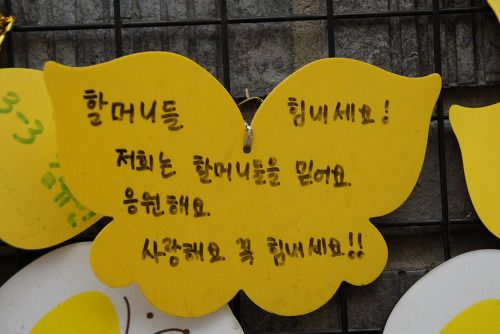 할머니들 힘내세요!
저희는 할머니들을 믿어요
응원해요
사랑해요 꼭 힘내세요!!
3-3